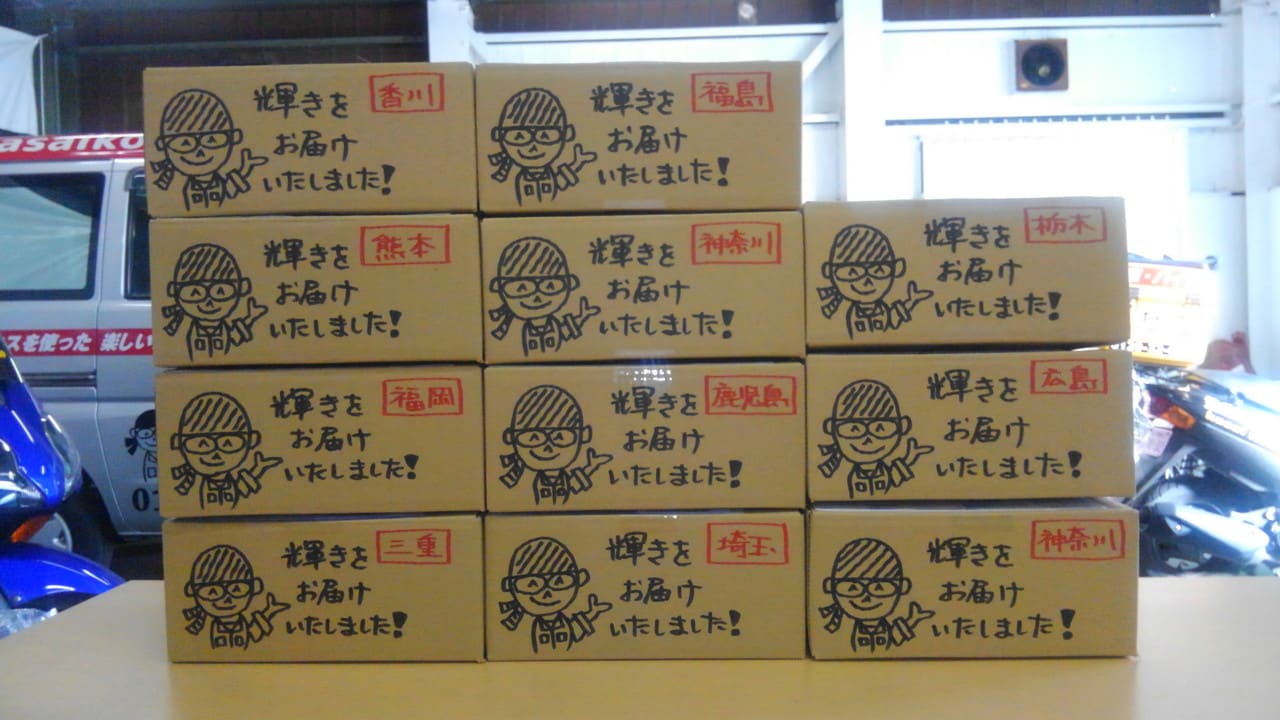 香川
輝きを
お届け
いたしました!
福島
輝きを
お届け
いたしました!
熊本
輝きを
お届け
いたしました!
神奈川
輝きを
お届け
いたしました!
栃木
輝きを
お届け
いたしました!
福岡
輝きを
お届け
いたしました!
鹿児島
輝きを
お届け
いたしました!
広島
輝きを
お届け
いたしました!
三重
輝きを
お届け
いたしました!
埼玉
輝きを
お届け
いたしました!
神奈川
輝きを
お届け
いたしました!
asaiko
スを使った 楽しい